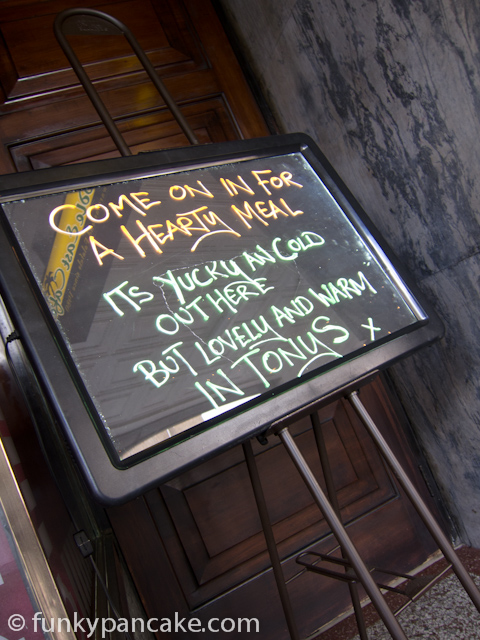 COME ON IN FOR
A HEARTY MEAL
ITS YUCKY AN COLD
OUT HERE
BUT LOVELY AND WARM
IN TONYS x
© funkypancake.com